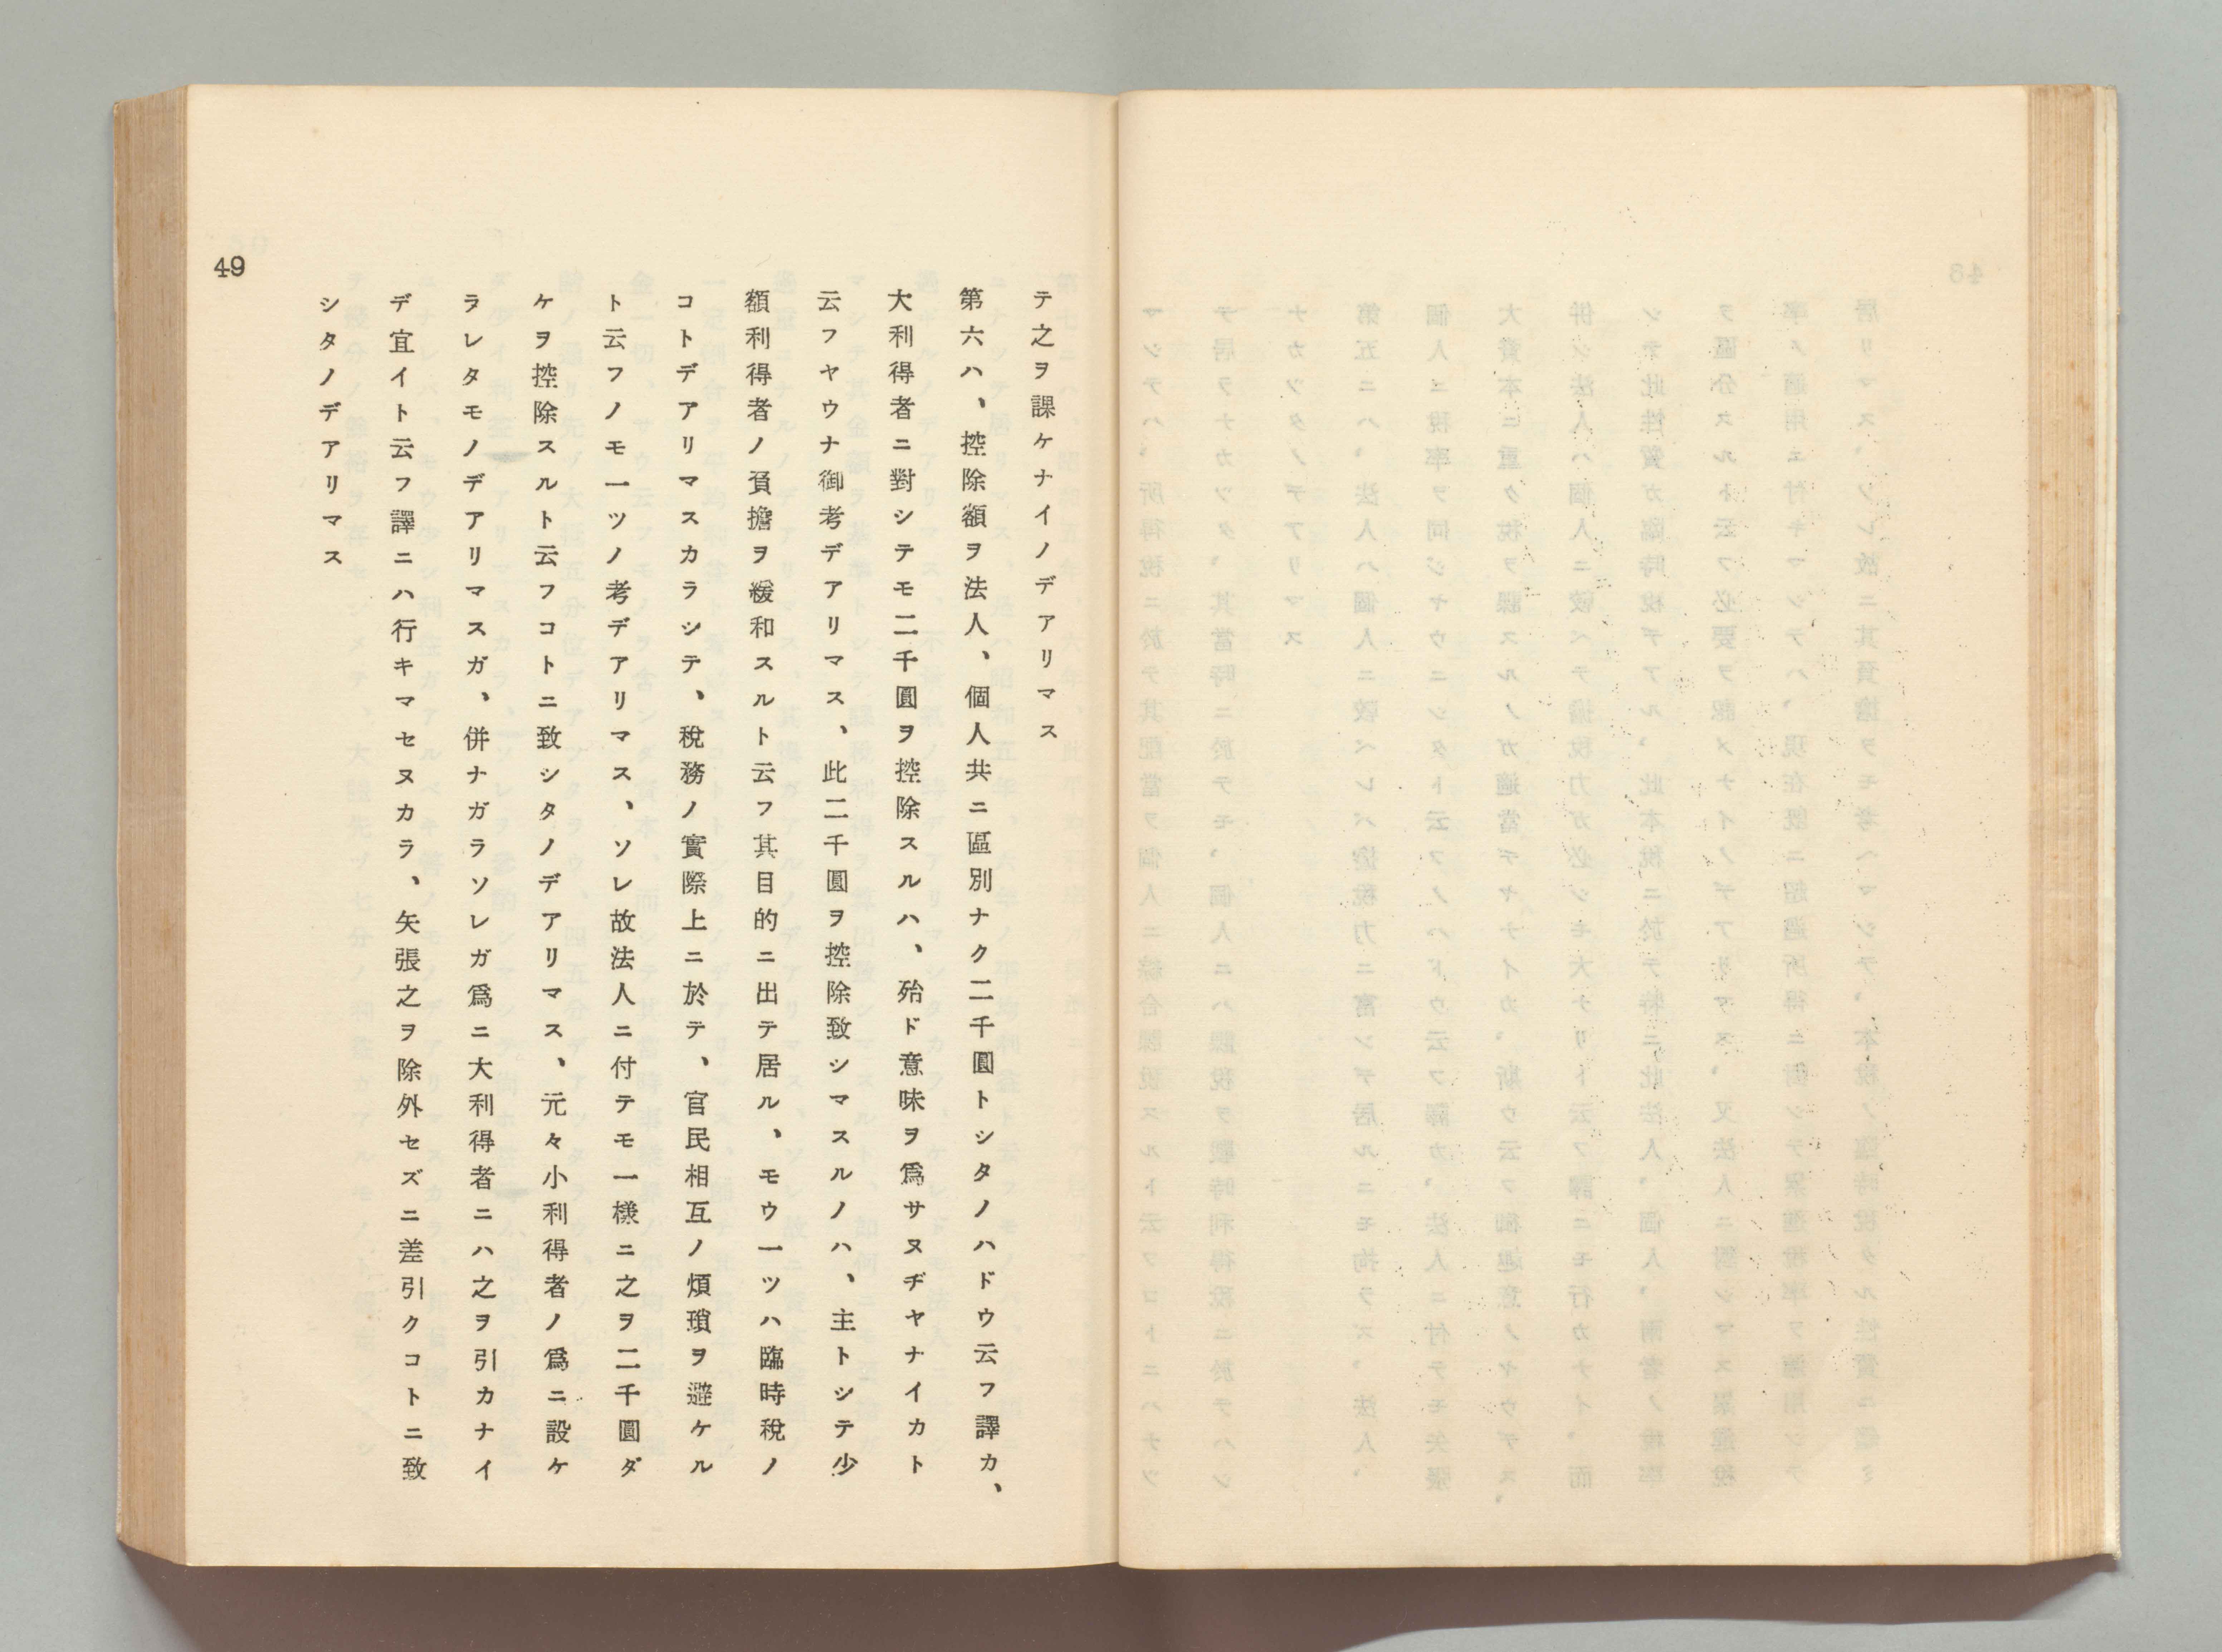 テ之ヲ課ケナイノデアリマス
第六ハ、控除額ヲ法人、個人共ニ區別ナク二千圓トシタノハドウ云フ譯カ、
大利得者ニ對シテモ二千圓ヲ控除スルハ、殆ド意味ヲ爲サヌヂヤナイカト
云フヤウナ御考デアリマス、此二千圓ヲ控除致シマスルノハ、主トシテ少
額利得者ノ負擔ヲ緩和スルト云フ其目的ニ出テ居ル、モウ一ツハ臨時稅ノ
コトデアリマスカラシテ、稅務ノ實際上ニ於テ、官民相互ノ煩瑣ヲ避ケル
ト云フノモ一ツノ考デアリマス、ソレ故法人ニ付テモ一樣ニ之ヲ二千圓ダ
ケヲ控除スルト云フコトニ致シタノデアリマス、元々小利得者ノ爲ニ設ケ
ラレタモノデアリマスガ、併ナガラソレガ爲ニ大利得者ニハ之ヲ引カナイ
デ宜イト云フ譯ニハ行キマセヌカラ、矢張之ヲ除外セズニ差引クコトニ致
シタノデアリマス
49